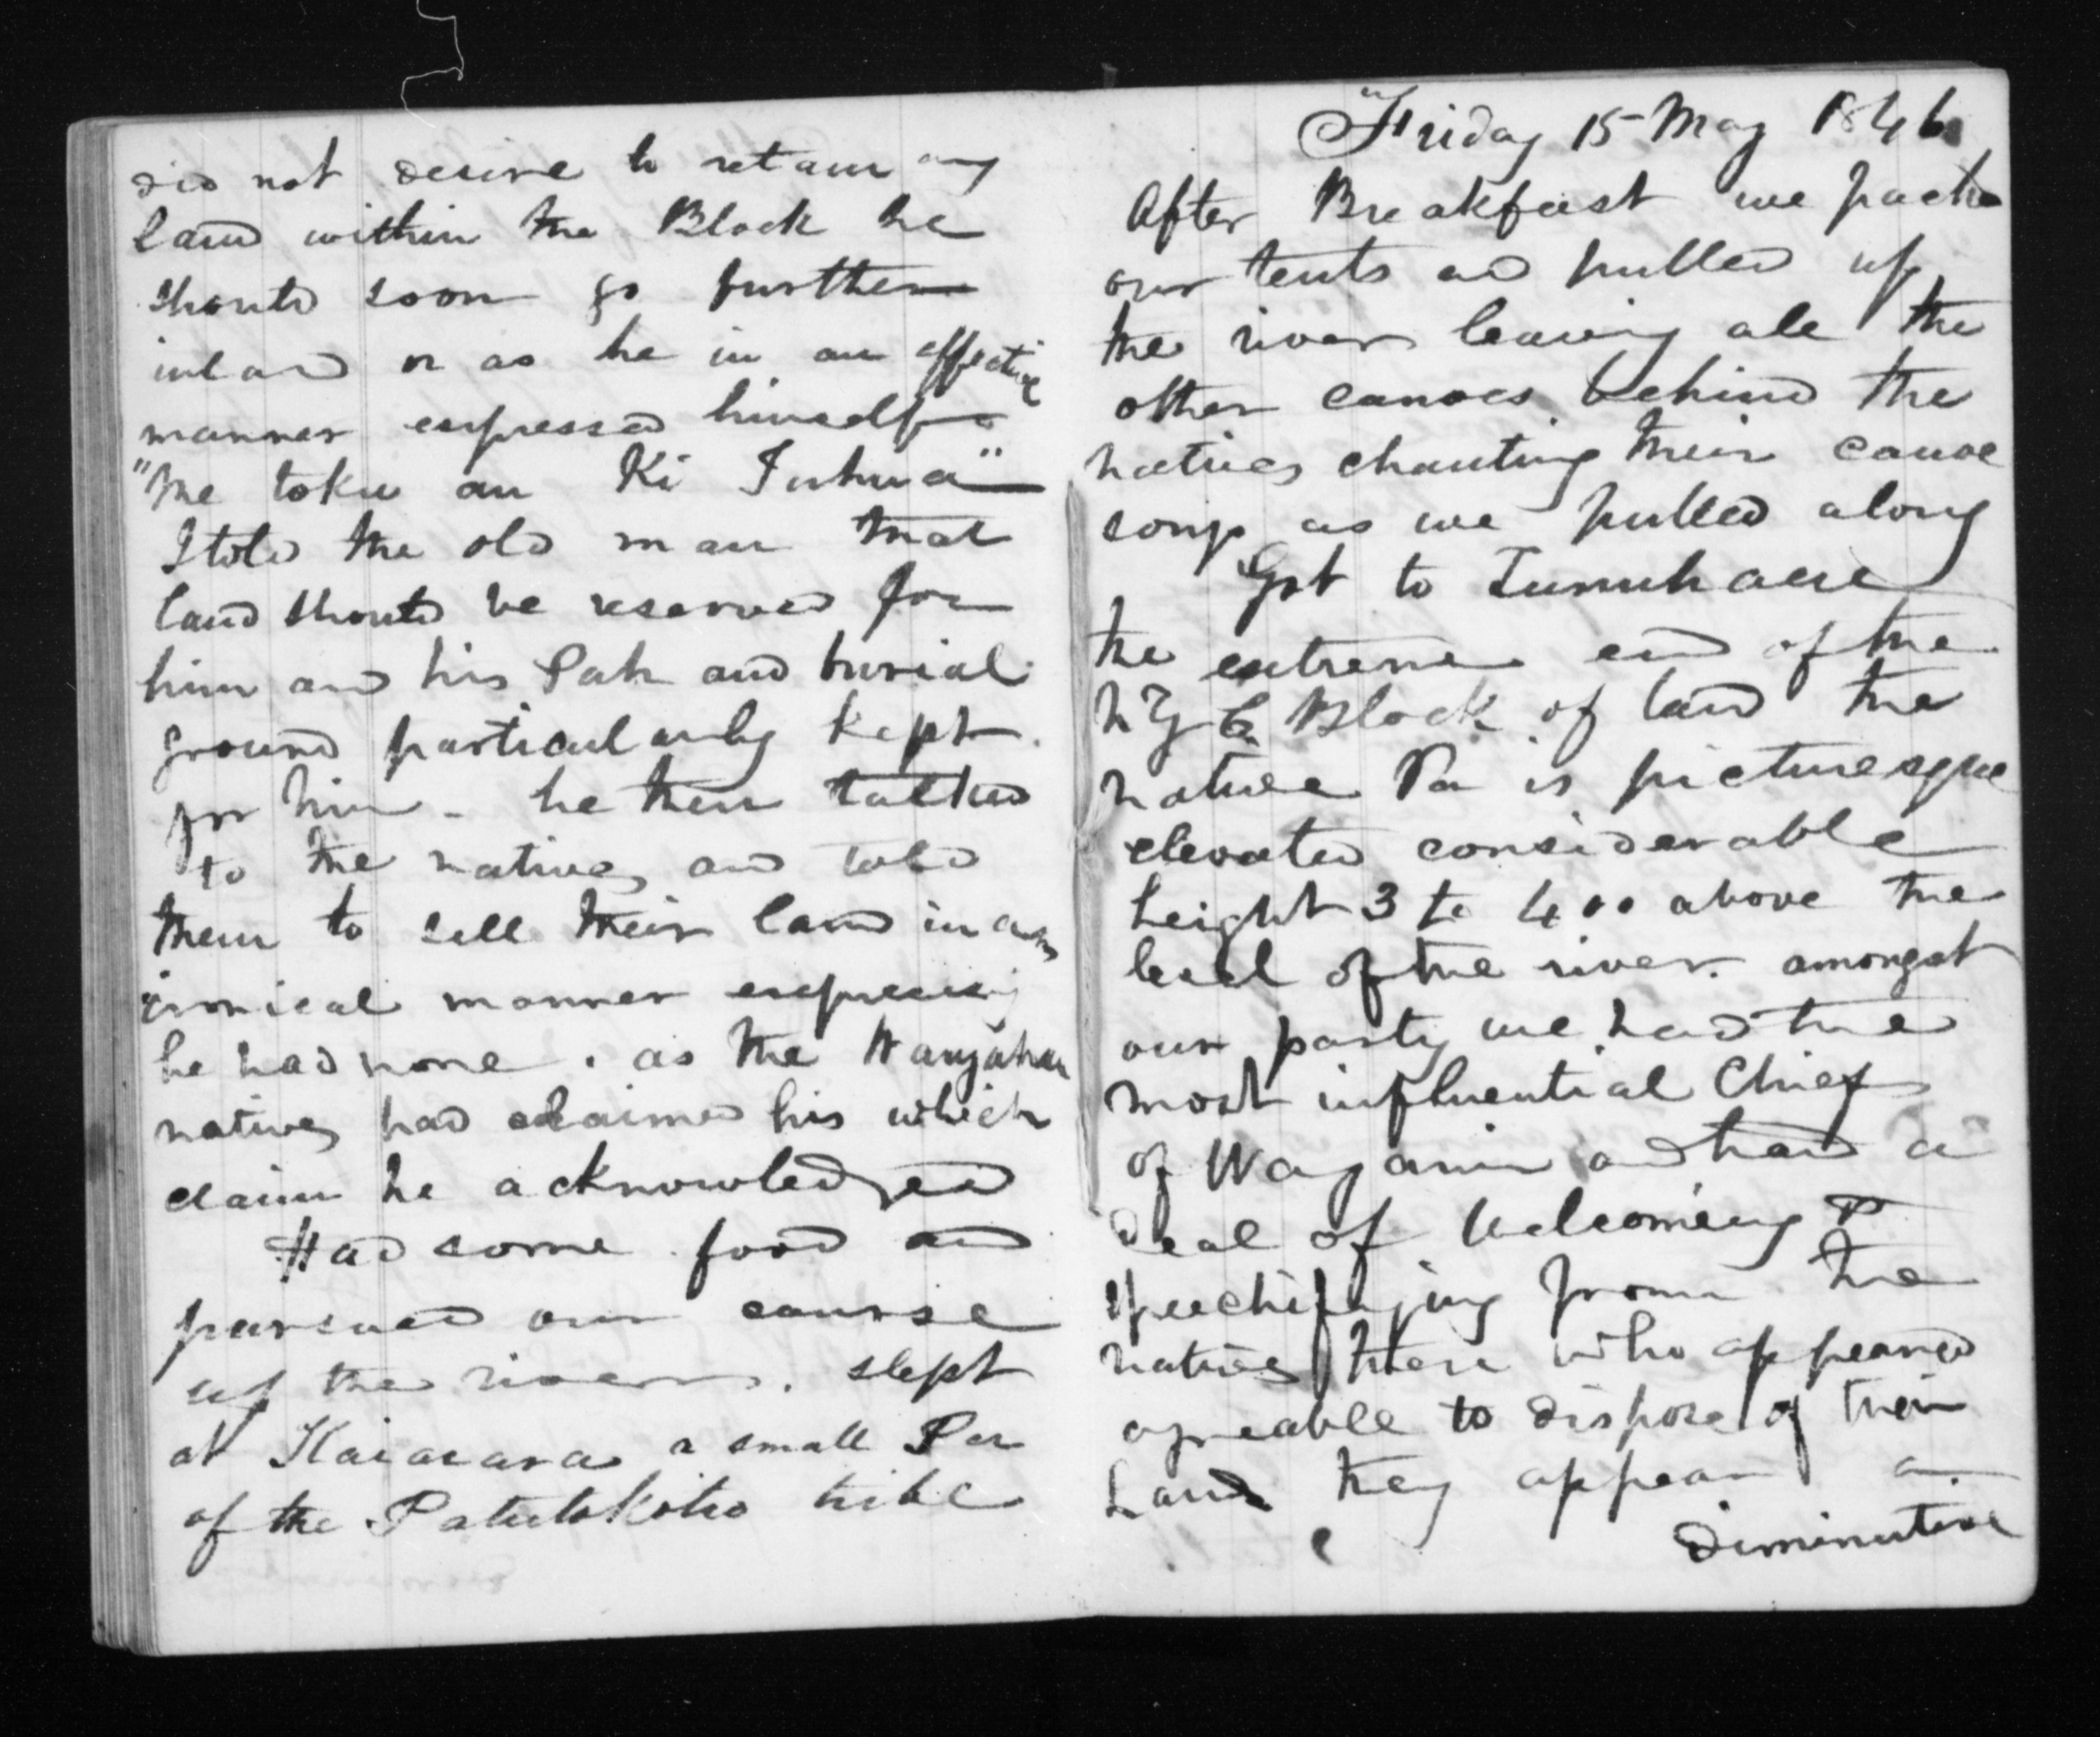 did not desire to retain any
land within the Block he
should soon go further
inland or as he in an affective
manner expressed himself
"Me toku au Ki Tuhua"
I told the old man that
land should be reserved for
him and his Pah and burial
ground particularly kept
for him - he then talked
to the natives and told
them to sell their land in an
ironical manner expressing
he had none . as the
natives had claimed his which
claim he acknowledged
Had some food and
pursued our course
up the river . slept
at a small Pa
of the Patutokotoko tribe
Friday 15 May 1846
After Breakfast we packed
our tents and pulled up
the river leaving all the
other canoes behind the
natives chanting their canoe
songs as we pulled along
Got to Tunuhaere
the extreme end of the
N Z C Block of land the
native Pa is picturesque
elevated considerable
height 3 to 400 above the
level of the river. amongst
our party we had the
most influential Chief
of and had a
deal of Welcoming &
speechifying from the
natives there who appeared
agreeable to dispose of their
Land they appear a
diminutive